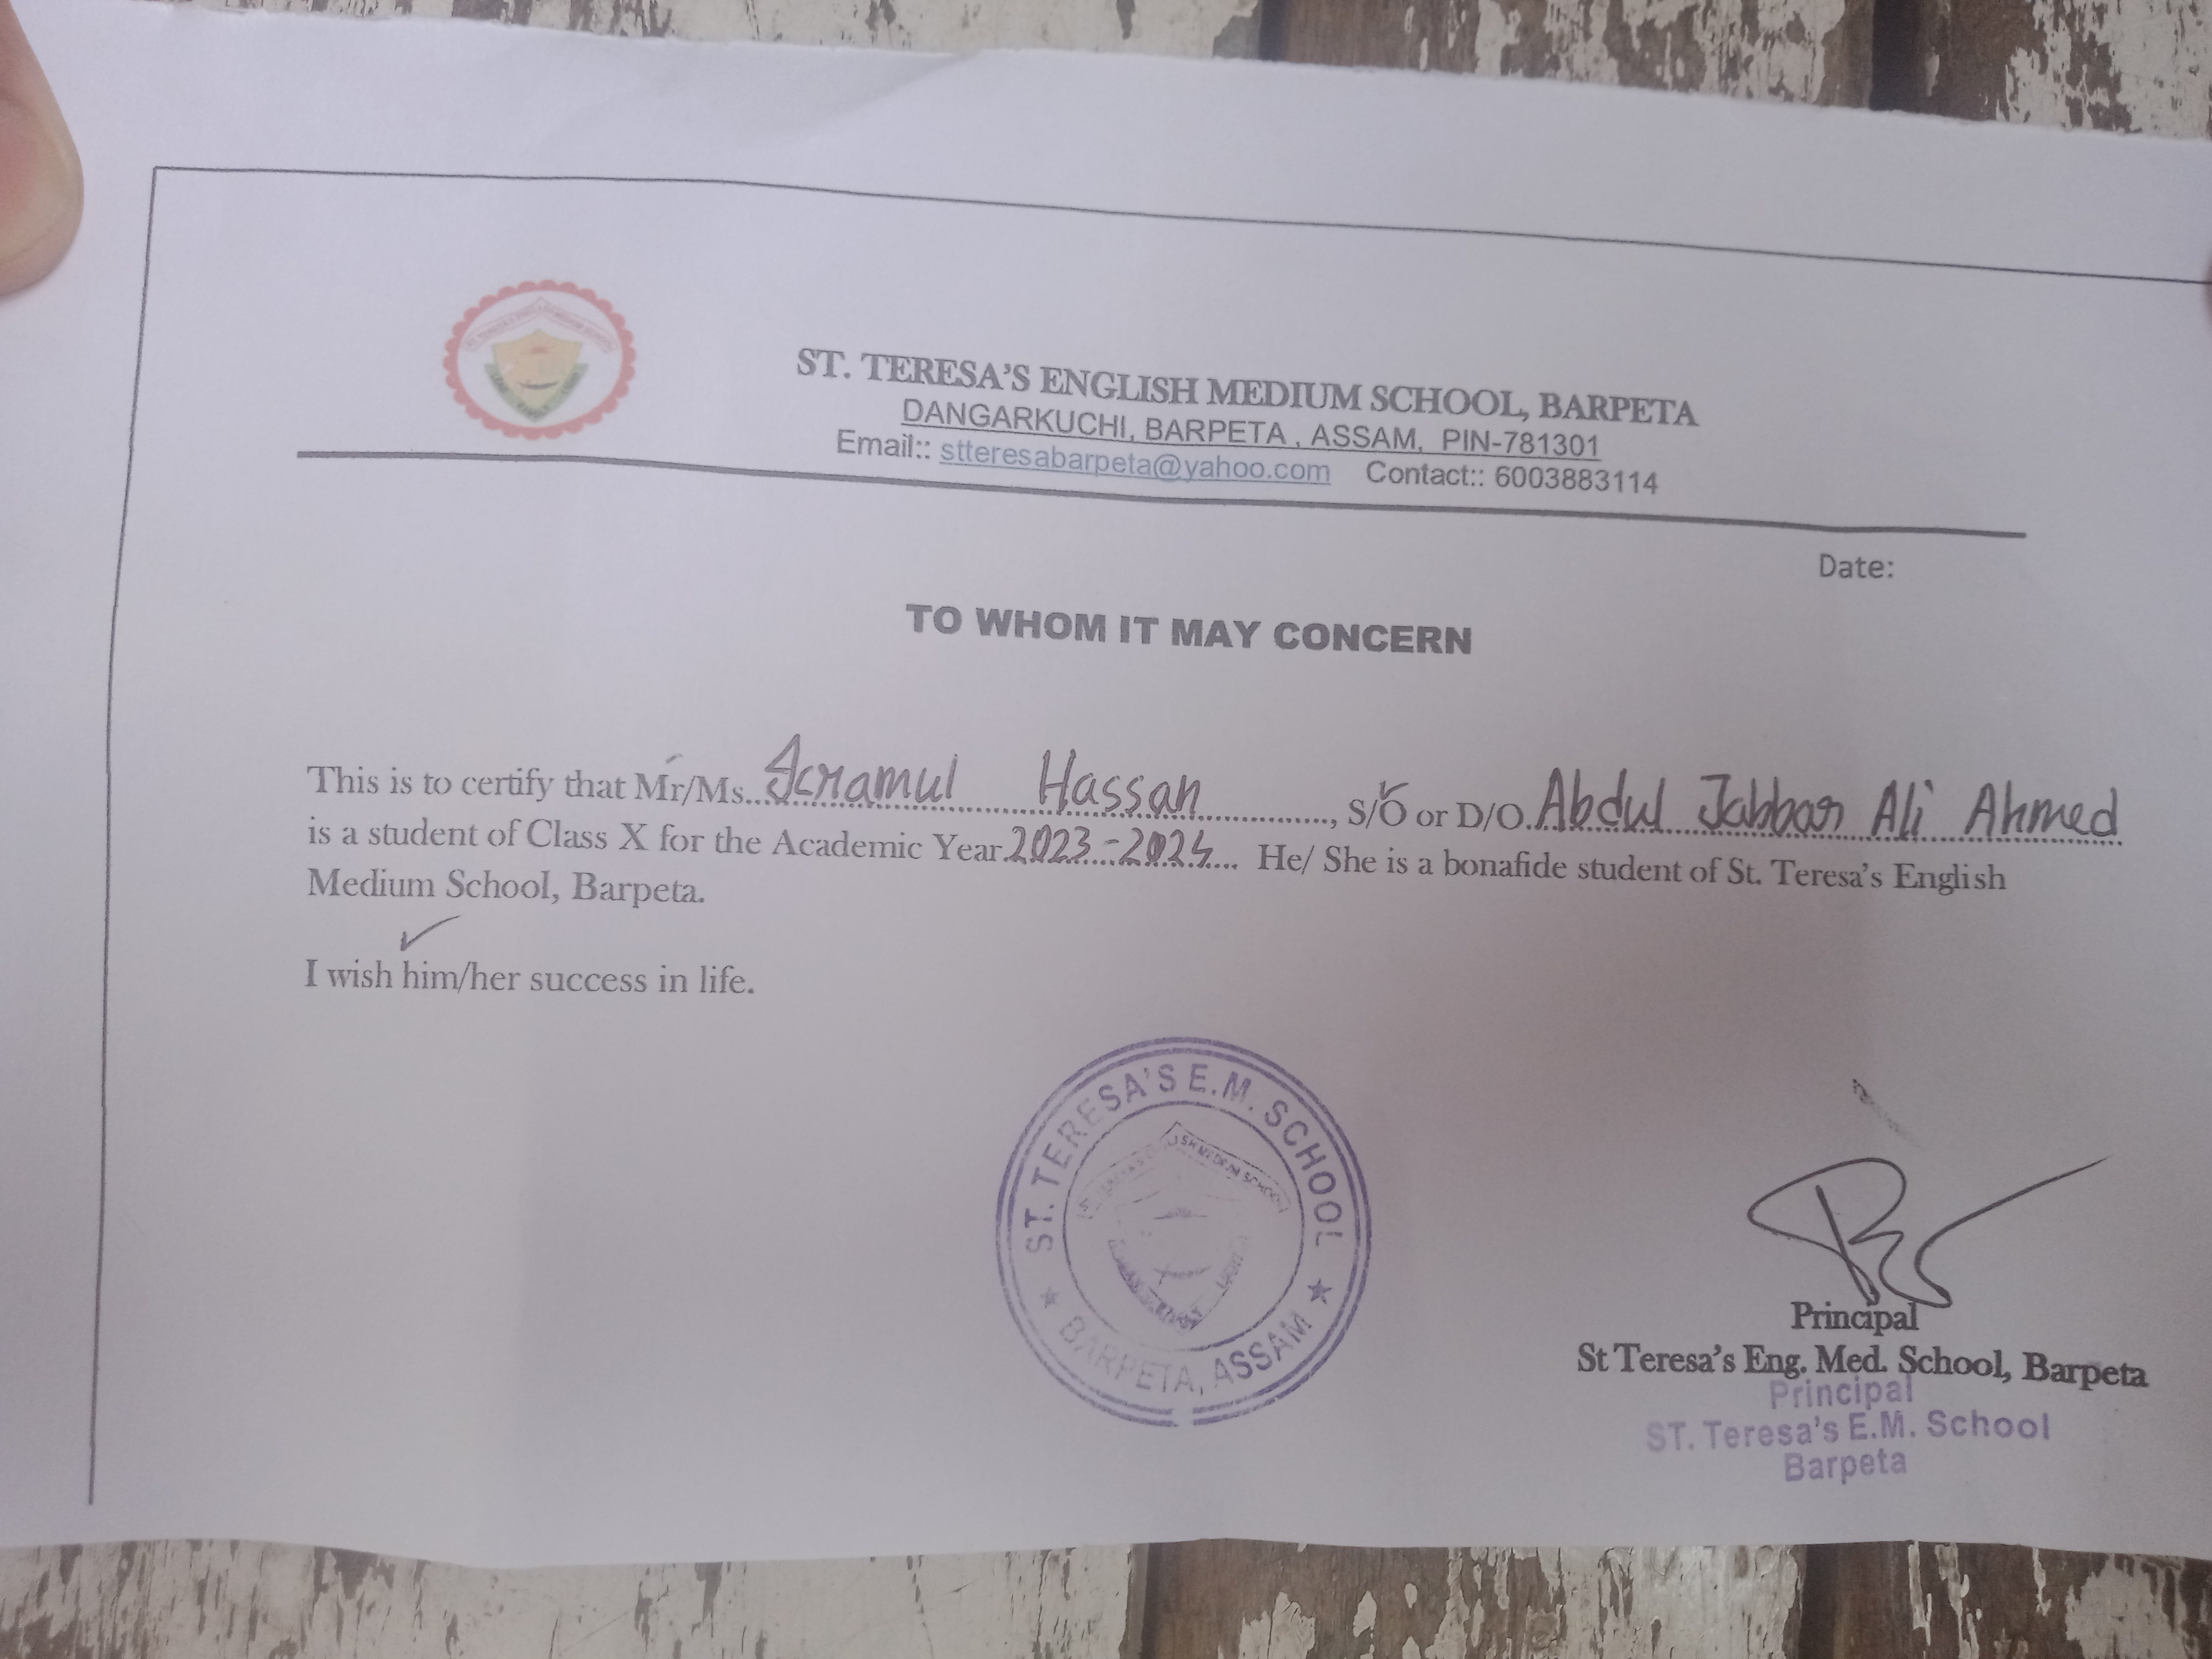 ST. TERESA'S ENGLISH MEDIUM SCHOOL, BARPETA
DANGARKUCHI, BARPETA , ASSAM, PIN-781301
Email:: stteresabarpeta@yahoo.com Contact:: 6003883114
Date:
TO WHOM IT MAY CONCERN
This is to certify that Mr/Ms. Icramul Hassan, S/O or D/O. Abdul Jabbar Ali Ahmed
is a student of Class X for the Academic Year 2023-2024... He/ She is a bonafide student of St. Teresa's English
Medium School, Barpeta.
I wish him/her success in life.
ST. TERESA'S E.M. SCHOOL
BARPETA, ASSAM
Principal
St Teresa's Eng. Med. School, Barpeta
Principal
ST. Teresa's E.M. School
Barpeta